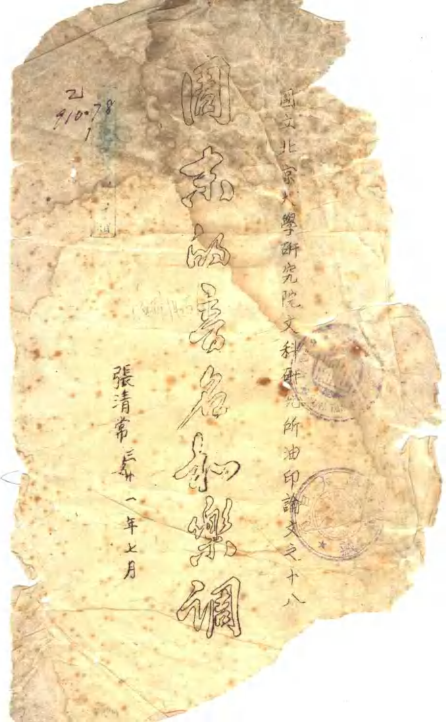 國立北京大學研究院文科研究所油印論文之十八
周末的音名和樂調
張清常 三十一年七月
乙
910.78
1